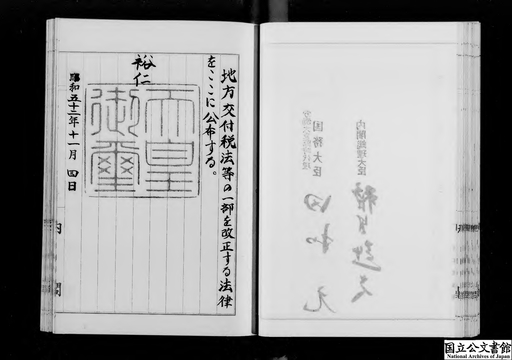 地方交付税法等の一部を改正する法律
をここに公布する。
裕仁
天皇
御璽
昭和五十三年十一月四日
内閣
内閣総理大臣
国務大臣
国立公文書館
National Archives of Japan